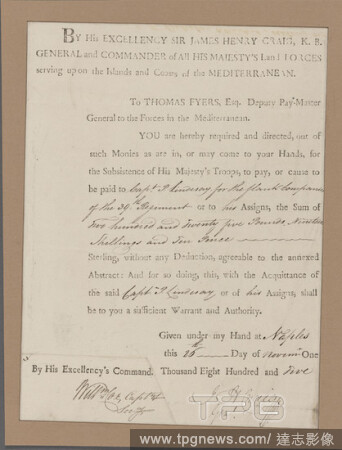 BY HIS EXCELLENCY SIR JAMES HENRY CRAIG, K. B.
GENERAL and COMMANDER of ALL HIS MAJESTY's Land FORCES
serving upon the Islands and Coasts of the MEDITERRANEAN.
To THOMAS FYERS, Esq. Deputy Pay-Master
General to the Forces in the Mediterranean.
YOU are hereby required and directed, out of
such Monies as are in, or may come to your Hands, for
the Subsistence of His Majesty's Troops, to pay, or cause to
be paid to Capt. P. Lindesay for the flank Companies
of the 39th Regiment or to his Assigns, the Sum of
two hundred and twenty five Pounds, Nineteen
Shillings and Ten Pence
Sterling, without any Deduction, agreeable to the annexed
Abstract: And for so doing, this, with the Acquittance of
the said Capt. P. Lindesay or of his Assigns, shall
be to you a sufficient Warrant and Authority.
Given under my Hand at Naples
this Day of One
By His Excellency's Command. Thousand Eight Hundred and five
Capt. &
Secy
tpg
www.tpgnews.com / 達志影像